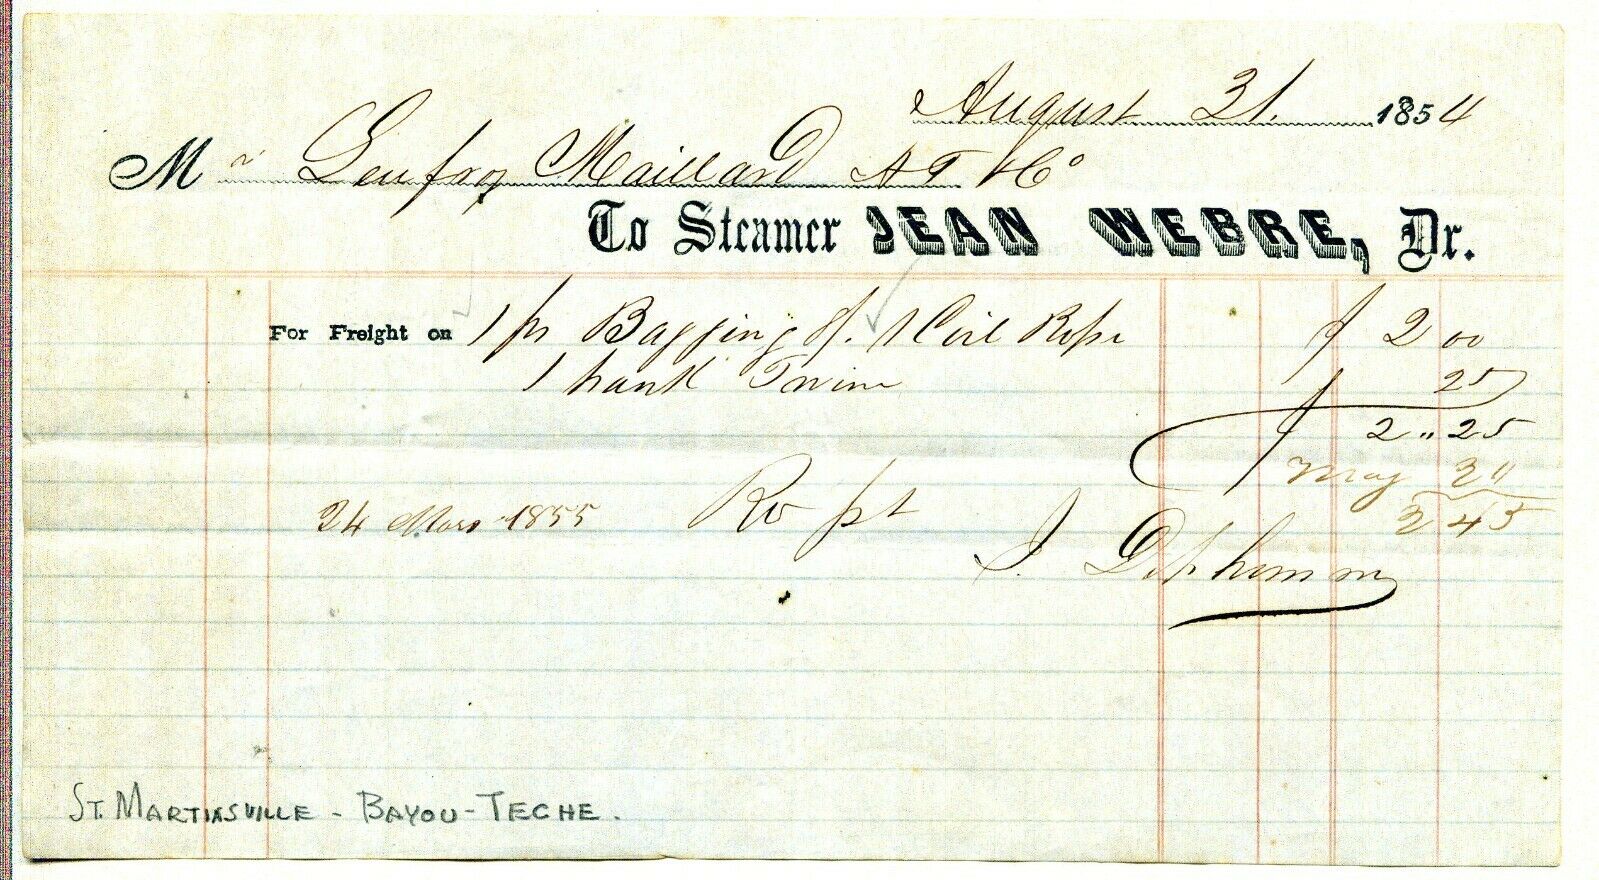 August 31. 1854
Mr Leufroy Maillard
To Steamer JEAN WEBRE, Dr.
For Freight on 1 ps Bagging & 1 Coil Rope $ 2 00
1 hank Twine 25
$ 2 " 25
20
24 Mars 1855 2 45
ST. MARTINSVILLE - BAYOU - TECHE.